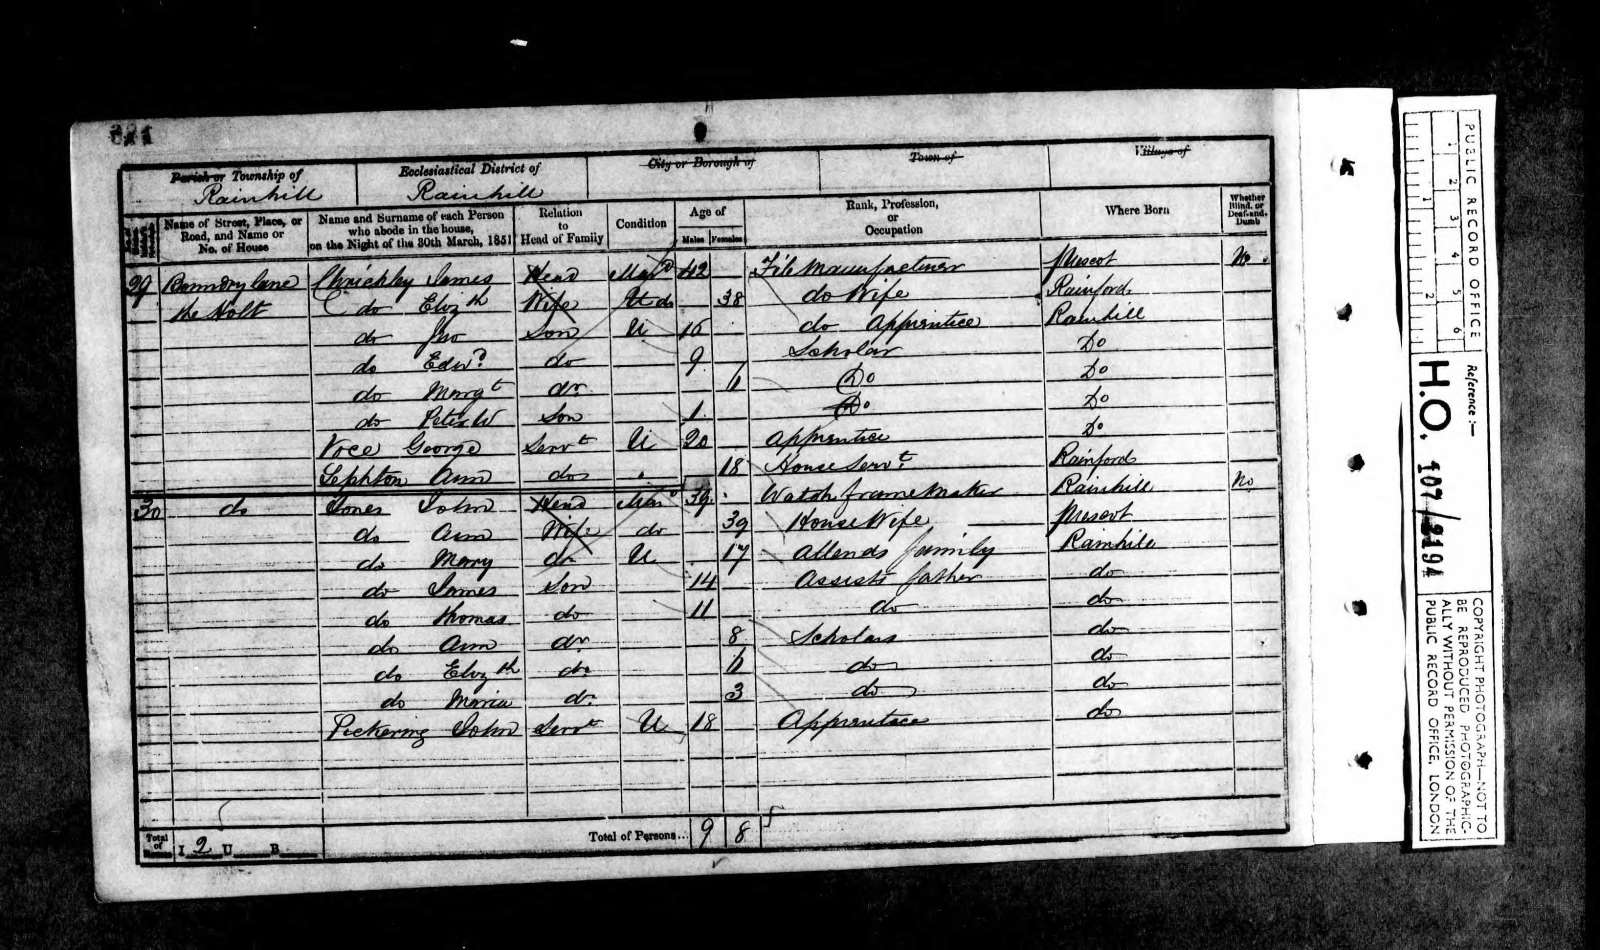 Parish or Township of
Rainhill
Ecclesiastical District of
Rainhill
City or Borough of
Town of
Village of
Name of Street, Place, or Road, and Name or No. of House
Name and Surname of each Person who abode in the house, on the Night of the 30th March, 1851
Relation to Head of Family
Condition
Age of
Males Females
Rank, Profession, or Occupation
Where Born
Whether Blind, or Deaf-and-Dumb
29 James Head Mard 42 File Manufacturer Prescot No
the Holt do Elizth Wife do 38 do Wife Rainford
do Jno Son U do Apprentice Rainhill
do Edwd do 9 Scholar Do
do Margt dr Do Do
do Peter W Son 1 Do Do
George Servt U 20 Apprentice Do
Sephton Ann do 18 House Servt Rainford
30 do Jones John Head Mard 39 Watch frame Maker Rainhill No
do Ann Wife do 39 House Wife Prescot
do Mary dr U 17 Attends family Rainhill
do James Son 14 Assists father do
do Thomas do 11 do do
do Ann dr 8 Scholars do
do Elizth do 6 do do
do Maria dr 3 do do
Pickering John Servt U 18 Apprentice do
Total of Houses I 2 U B
Total of Persons... 9 8
PUBLIC RECORD OFFICE
1 2 3 4 5 6
1 2
Reference:—
H.O. 107/2194
COPYRIGHT PHOTOGRAPH—NOT TO
BE REPRODUCED PHOTOGRAPHIC-
ALLY WITHOUT PERMISSION OF THE
PUBLIC RECORD OFFICE, LONDON